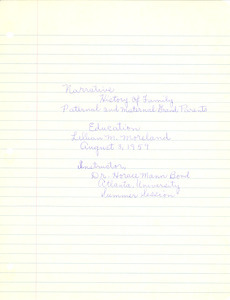 Narrative
History of Family
Paternal and Maternal Grand Parents
Education
Lillian M. Moreland
August 3, 1957
Instructor
Dr. Horace Mann Bond
Atlanta University
Summer Session